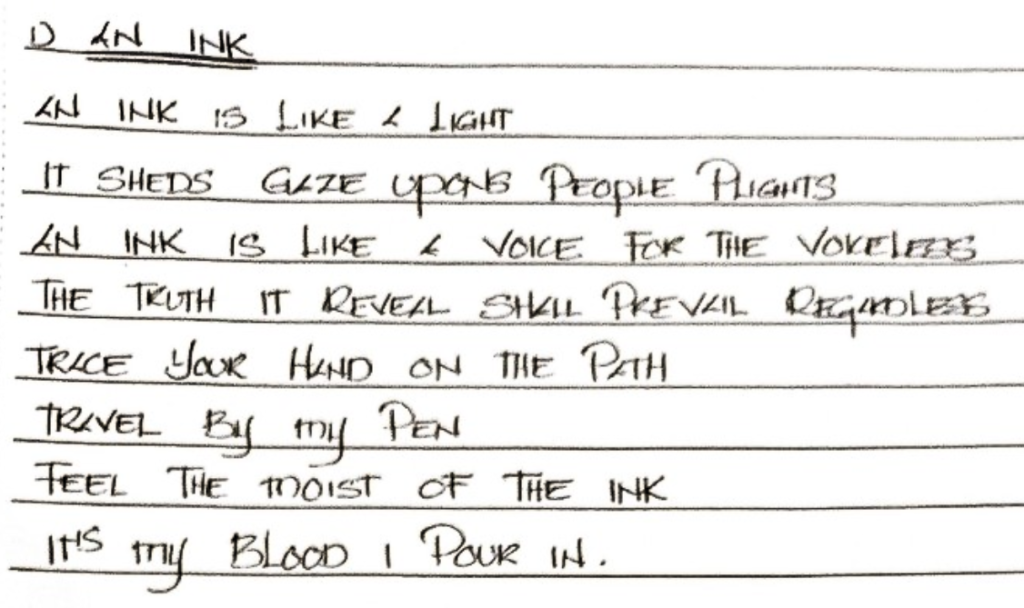 1) AN INK
AN INK IS LIKE A LIGHT
IT SHEDS GAZE UPONS PEOPLE PLIGHTS
AN INK IS LIKE A VOICE FOR THE VOICELESS
THE TRUTH IT REVEAL SHALL PREVAIL REGARDLESS
TRACE YOUR HAND ON THE PATH
TRAVEL BY MY PEN
FEEL THE MOIST OF THE INK
IT'S MY BLOOD I POUR IN.